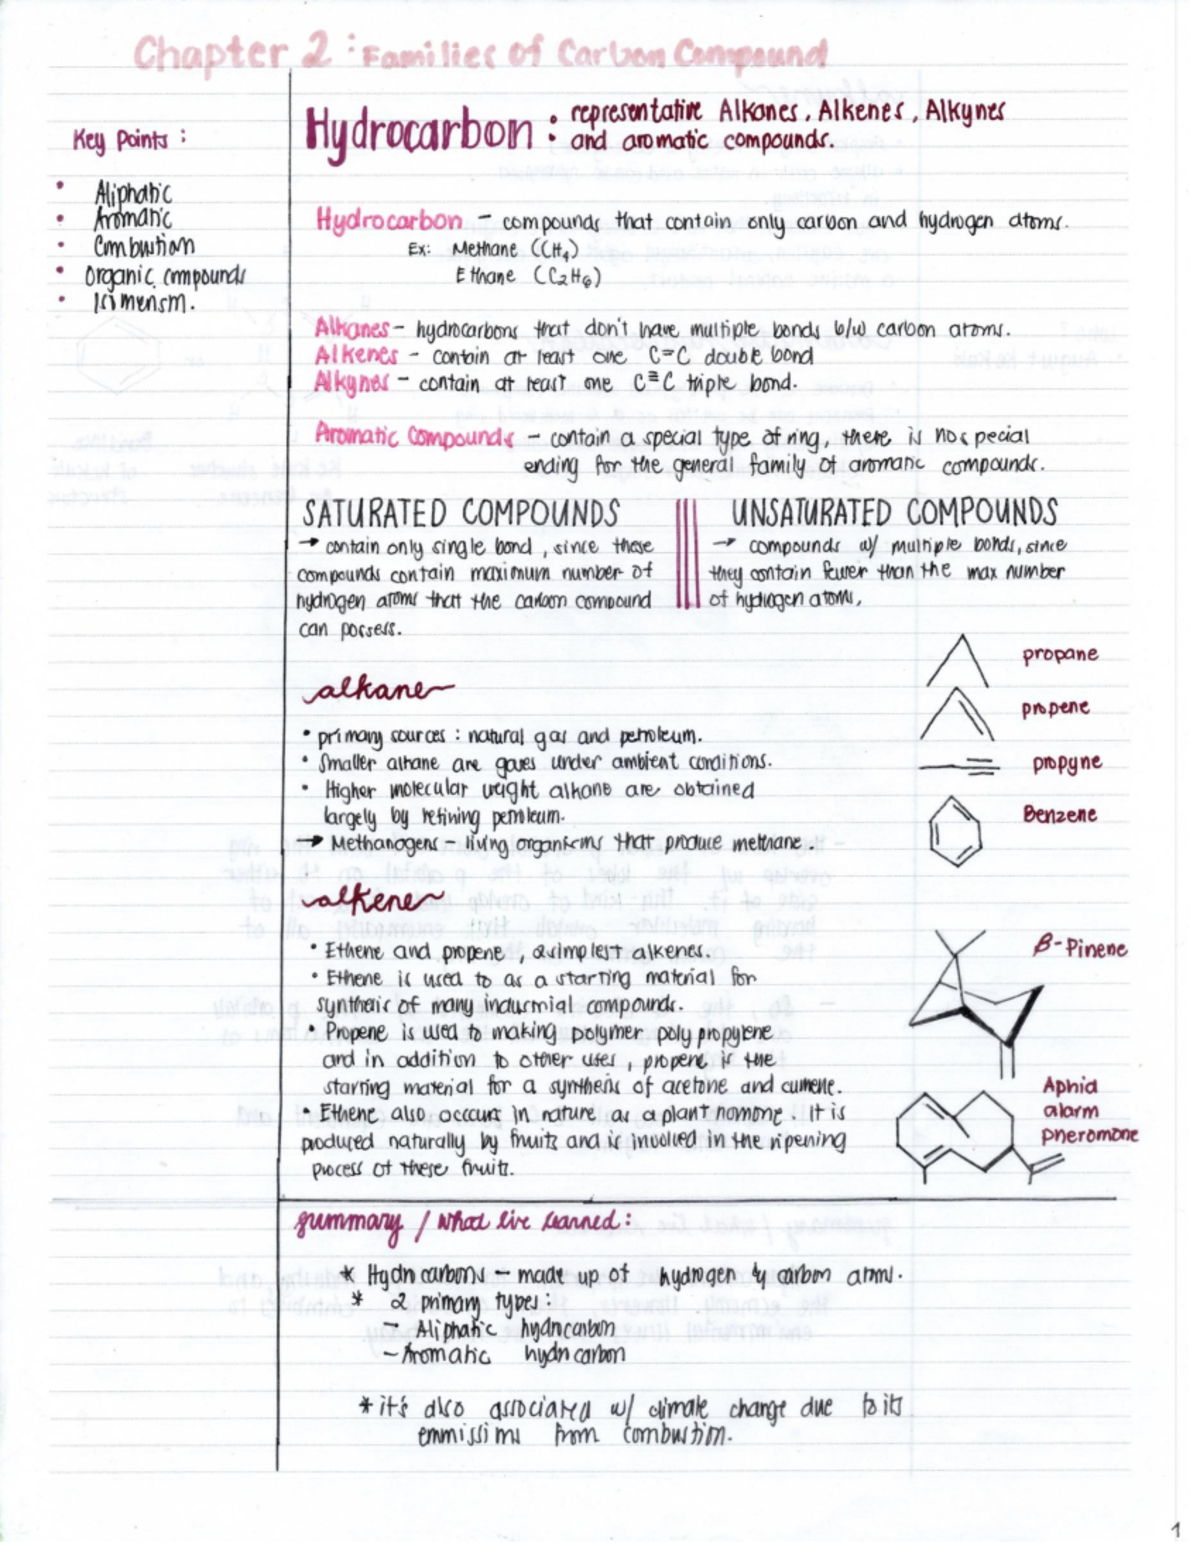 Chapter 2 : Families of Carbon Compound
Key Points :
• Aliphatic
• Aromatic
• Combustion
• Organic compounds
• Isimensm.
Hydrocarbon • representative Alkanes, Alkenes, Alkynes
• and aromatic compounds.
Hydrocarbon – compounds that contain only carbon and hydrogen atoms.
Ex: Methane (CH4)
Ethane (C2H6)
Alkanes – hydrocarbons that don't have multiple bonds b/w carbon atoms.
Alkenes – contain at least one C=C double bond
Alkynes – contain at least one C≡C triple bond.
Aromatic Compounds – contain a special type of ring, there is no special
ending for the general family of aromatic compounds.
SATURATED COMPOUNDS
→ contain only single bond, since these
compounds contain maximum number of
hydrogen atoms that the carbon compound
can possess.
UNSATURATED COMPOUNDS
→ compounds w/ multiple bonds, since
they contain fewer than the max number
of hydrogen atoms,
alkane
• primary sources : natural gas and petroleum.
• Smaller alkane are gases under ambient conditions.
• Higher molecular weight alkane are obtained
largely by refining petroleum.
→ Methanogens – living organisms that produce methane.
propane
propene
propyne
Benzene
alkene
• Ethene and propene, 2 simplest alkenes.
• Ethene is used to as a starting material for
synthesis of many industrial compounds.
• Propene is used to making polymer poly propylene
and in addition to other uses, propene is the
starting material for a synthesis of acetone and cumene.
• Ethene also occurs in nature as a plant homone. It is
produced naturally by fruits and is involved in the ripening
process of these fruits.
β-Pinene
Aphid
alarm
pheromone
summary / what i've learned :
* Hydrocarbons – made up of hydrogen & carbon atoms.
* 2 primary types :
– Aliphatic hydrocarbon
– Aromatic hydrocarbon
* it's also associated w/ climate change due to its
emmissions from combustion.
1